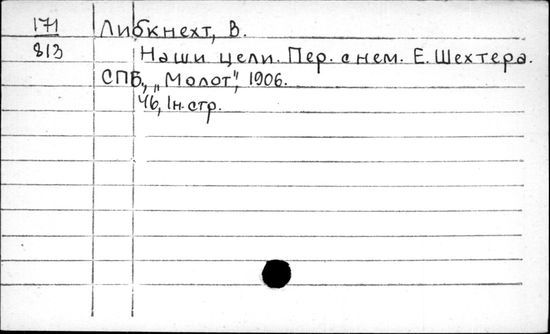 171 Либкнехт, В.
813 Наши цели. Пер. с нем. Е. Шехтера.
СПБ, „Молот", 1906.
46, 1н. стр.